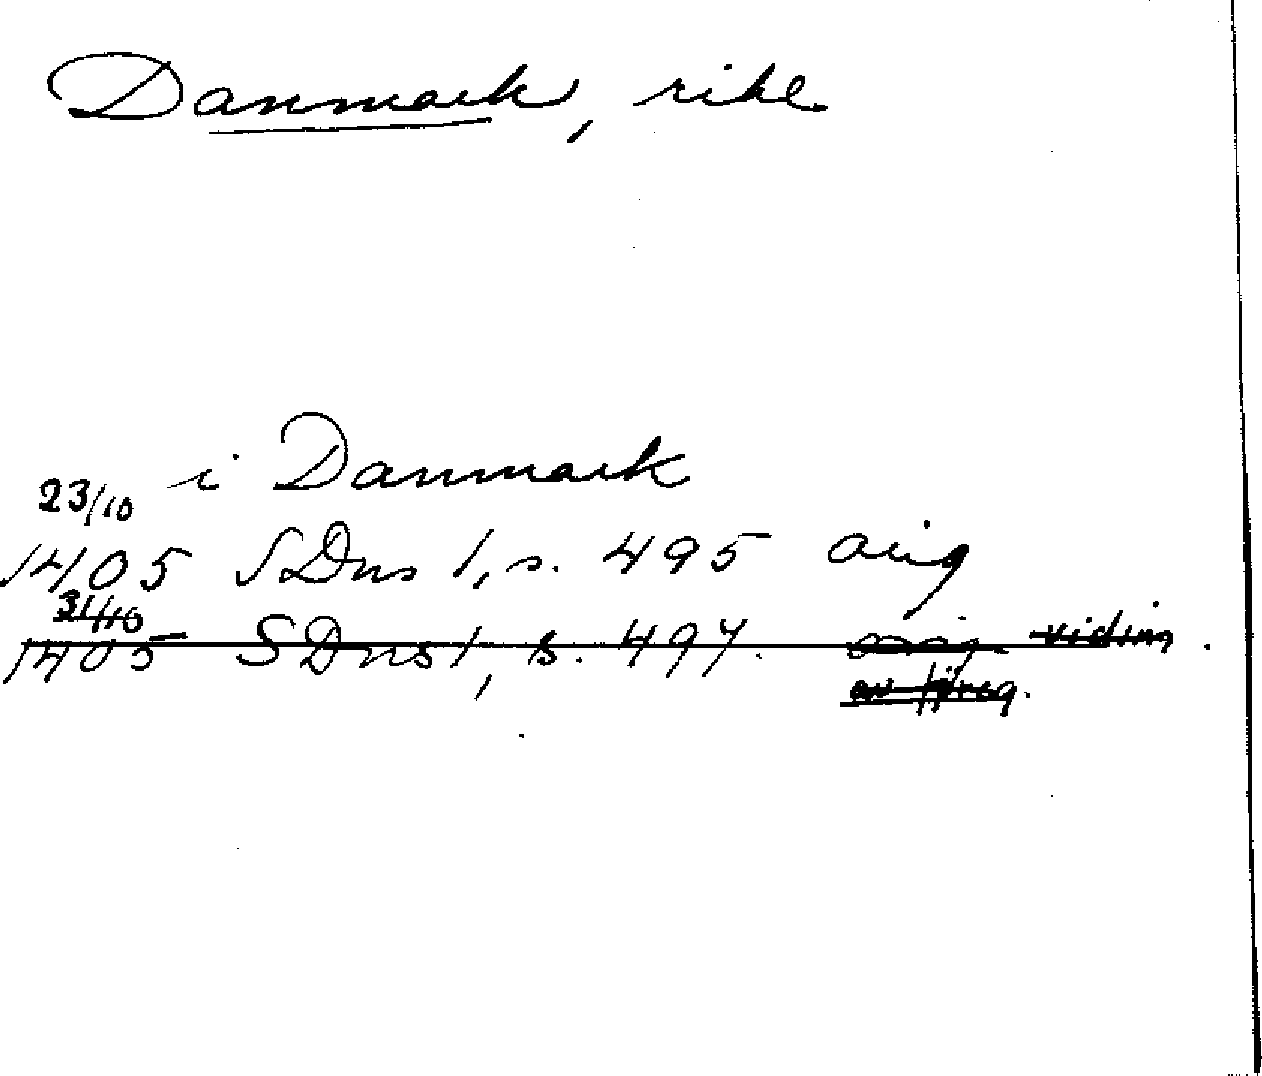 Danmark, rike
i Danmark
23/10
1405 SDns 1, s. 495 orig
31/10
1405 SDns 1, s. 497. orig vidim.
av föreg.